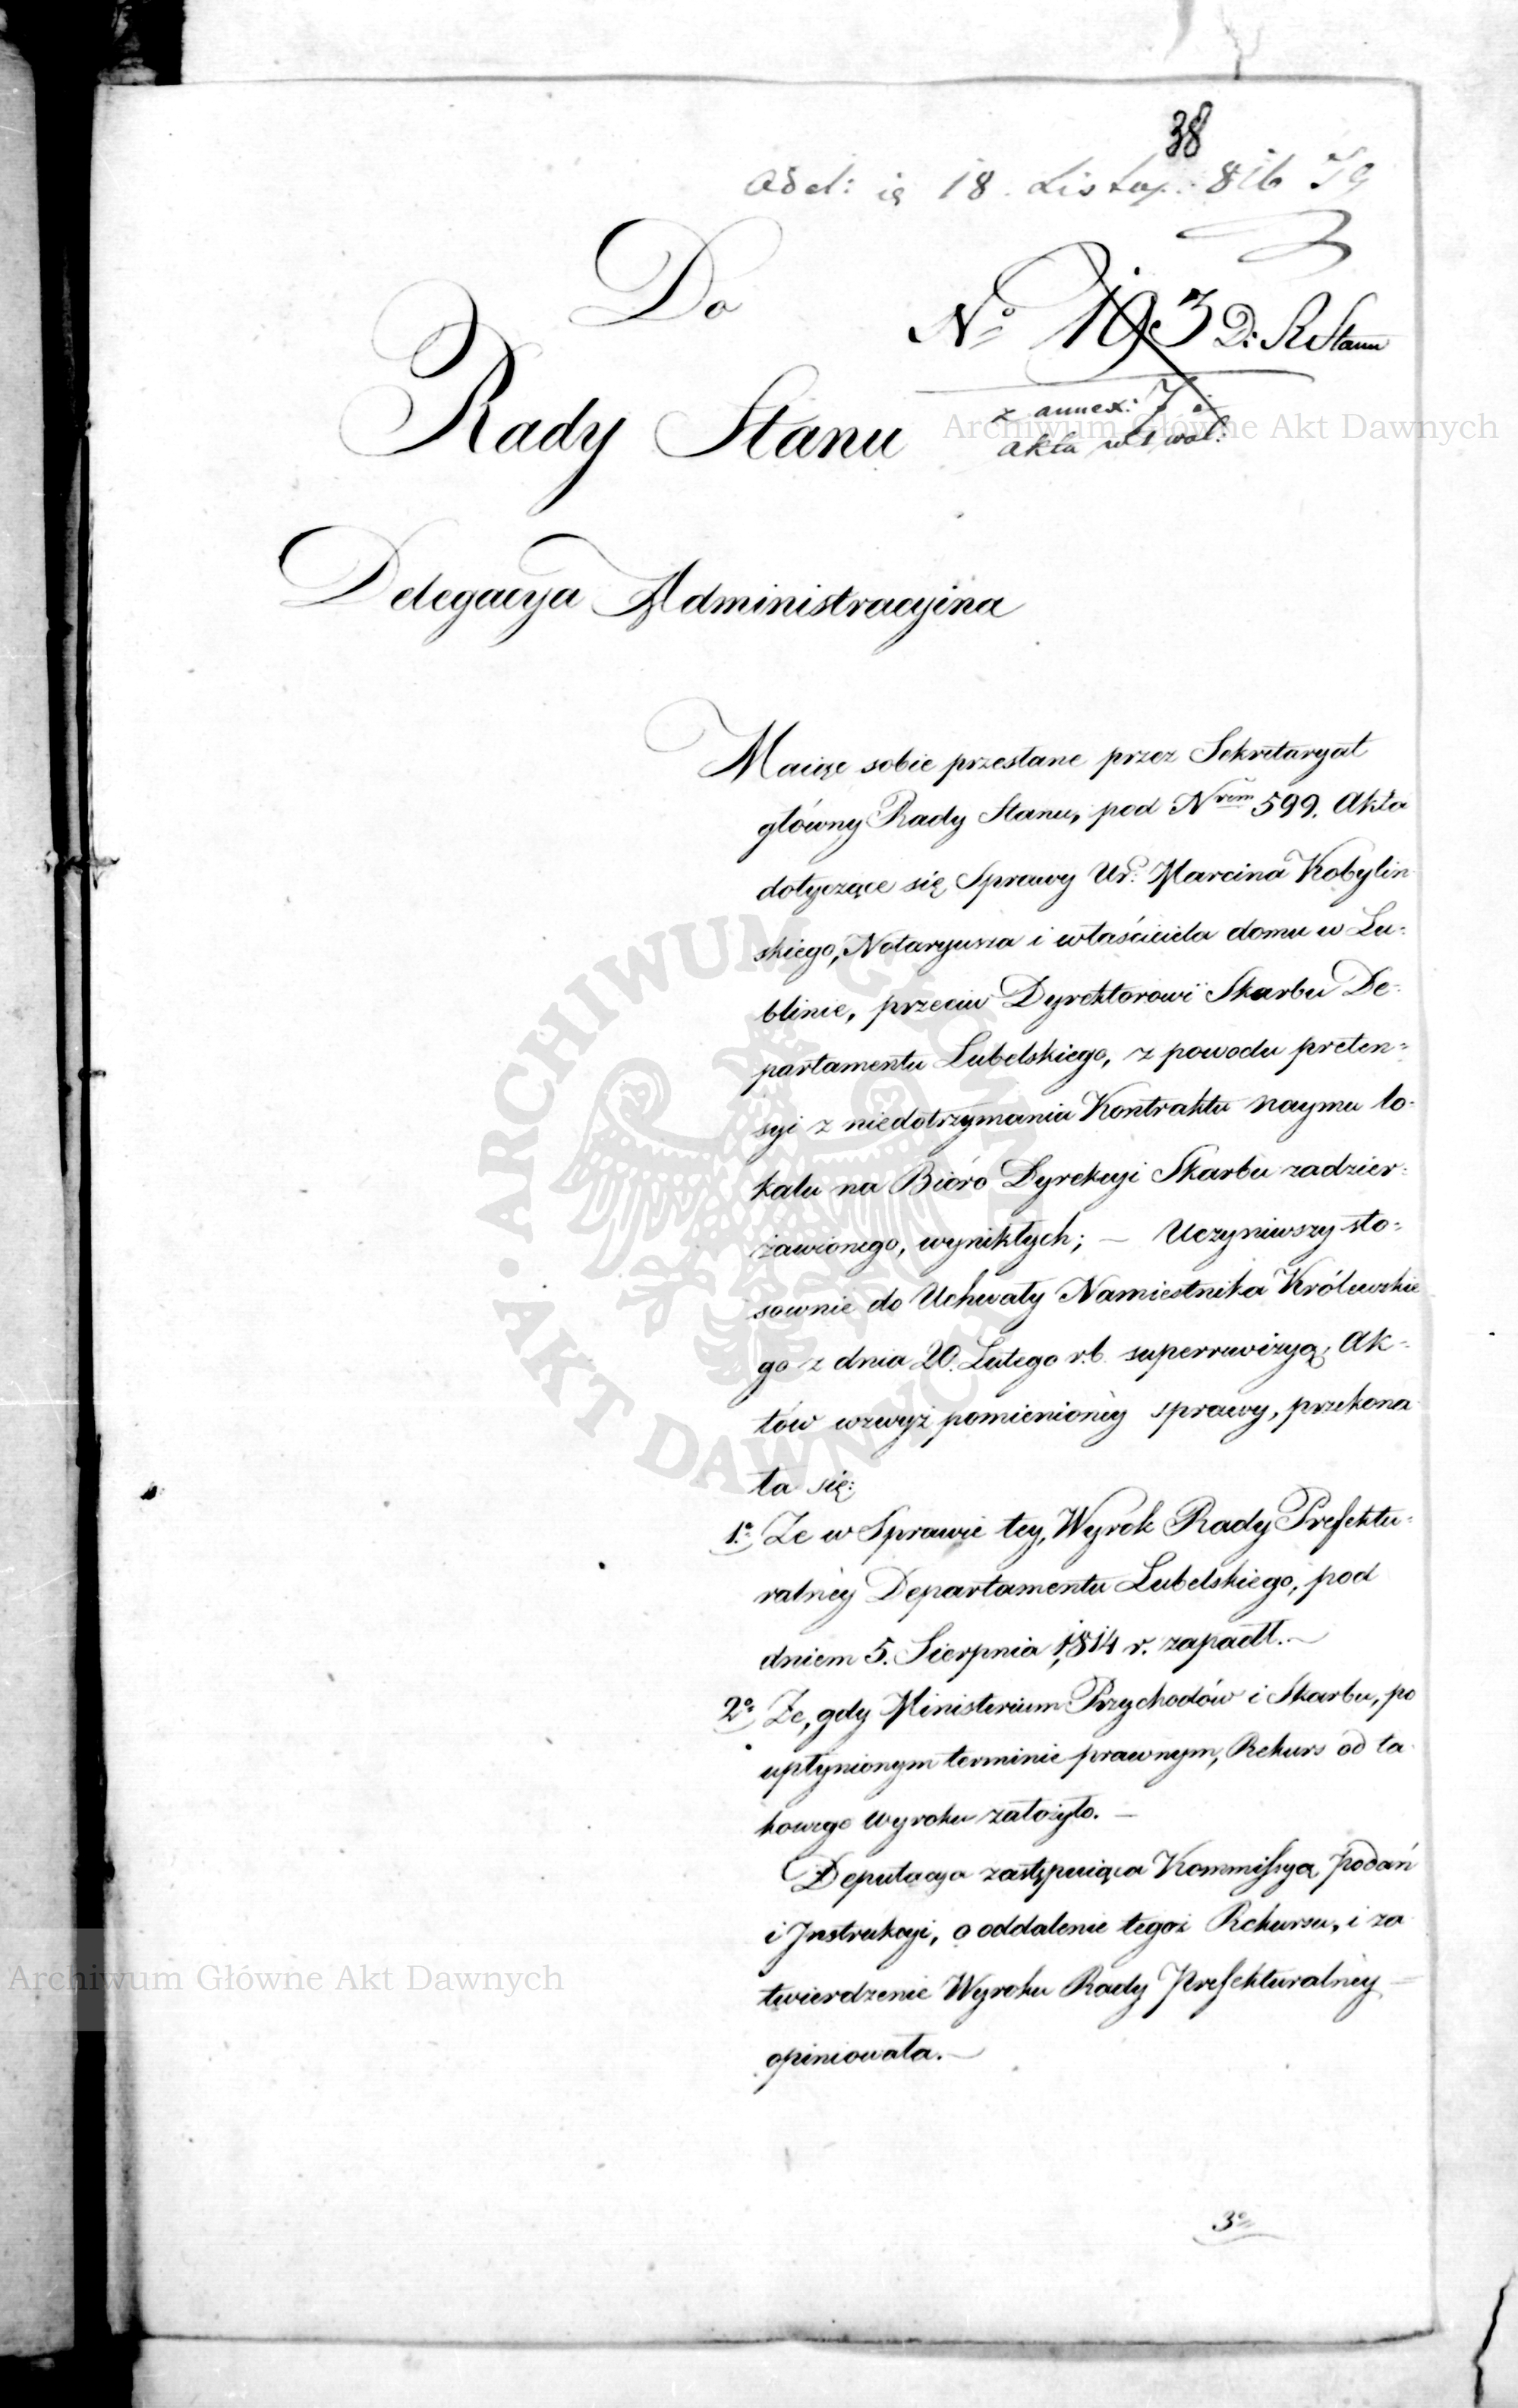 38
Odd: is 18. Listop: 816
Do
No 193 D: R Stanu
z annex: 7 i
akta w 1 wol:
Rady Stanu
Delegacya Administracyina
Maiąc sobie przesłane przez Sekretaryat
główny Rady Stanu, pod Nrem 599. Akta
dotyczące się Sprawy Ur: Marcina Kobylin
skiego, Notaryusza i właściciela domu w Lu-
blinie, przeciw Dyrektorowi Skarbu De-
partamentu Lubelskiego, z powodu preten=
syi z niedotrzymania Kontraktu naymu lo-
kalu na Bióro Dyrekcyi Skarbu zadzier-
żawionego, wynikłych; — Uczyniwszy sto-
sownie do Uchwały Namiestnika Królewskie
go z dnia 20. Lutego r.b. superrewizyą, Ak-
tów wzwyż pomienionéy sprawy, przekona
ła się:
1o Że w Sprawie tey, Wyrok Rady Prefektu-
ralnéy Departamentu Lubelskiego, pod
dniem 5. Sierpnia 1814 r. zapadł.—
2o Że, gdy Ministerium Przychodów i Skarbu, po
upłynionym terminie prawnym, Rekurs od ta-
kowego Wyroku założyło. —
Deputacya zastępuiąca Kommissyą Podań
i Instrukcyi, o oddalenie tegoż Rekursu, i za
twierdzenie Wyroku Rady Prefekturalnéy —
opiniowała.—
3o
Archiwum Główne Akt Dawnych
ARCHIWUM GŁÓWNE AKT DAWNYCH
Archiwum Główne Akt Dawnych